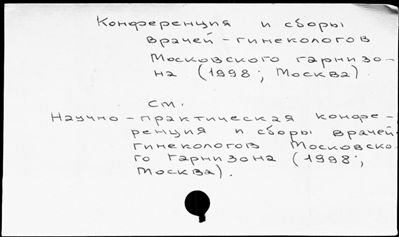 Конференция и сборы
врачей-гинекологов
Московского гарнизо-
на (1998; Москва).
см.
Научно-практическая конфе-
ренция и сборы врачей-
гинекологов Московско-
го гарнизона (1998;
Москва).